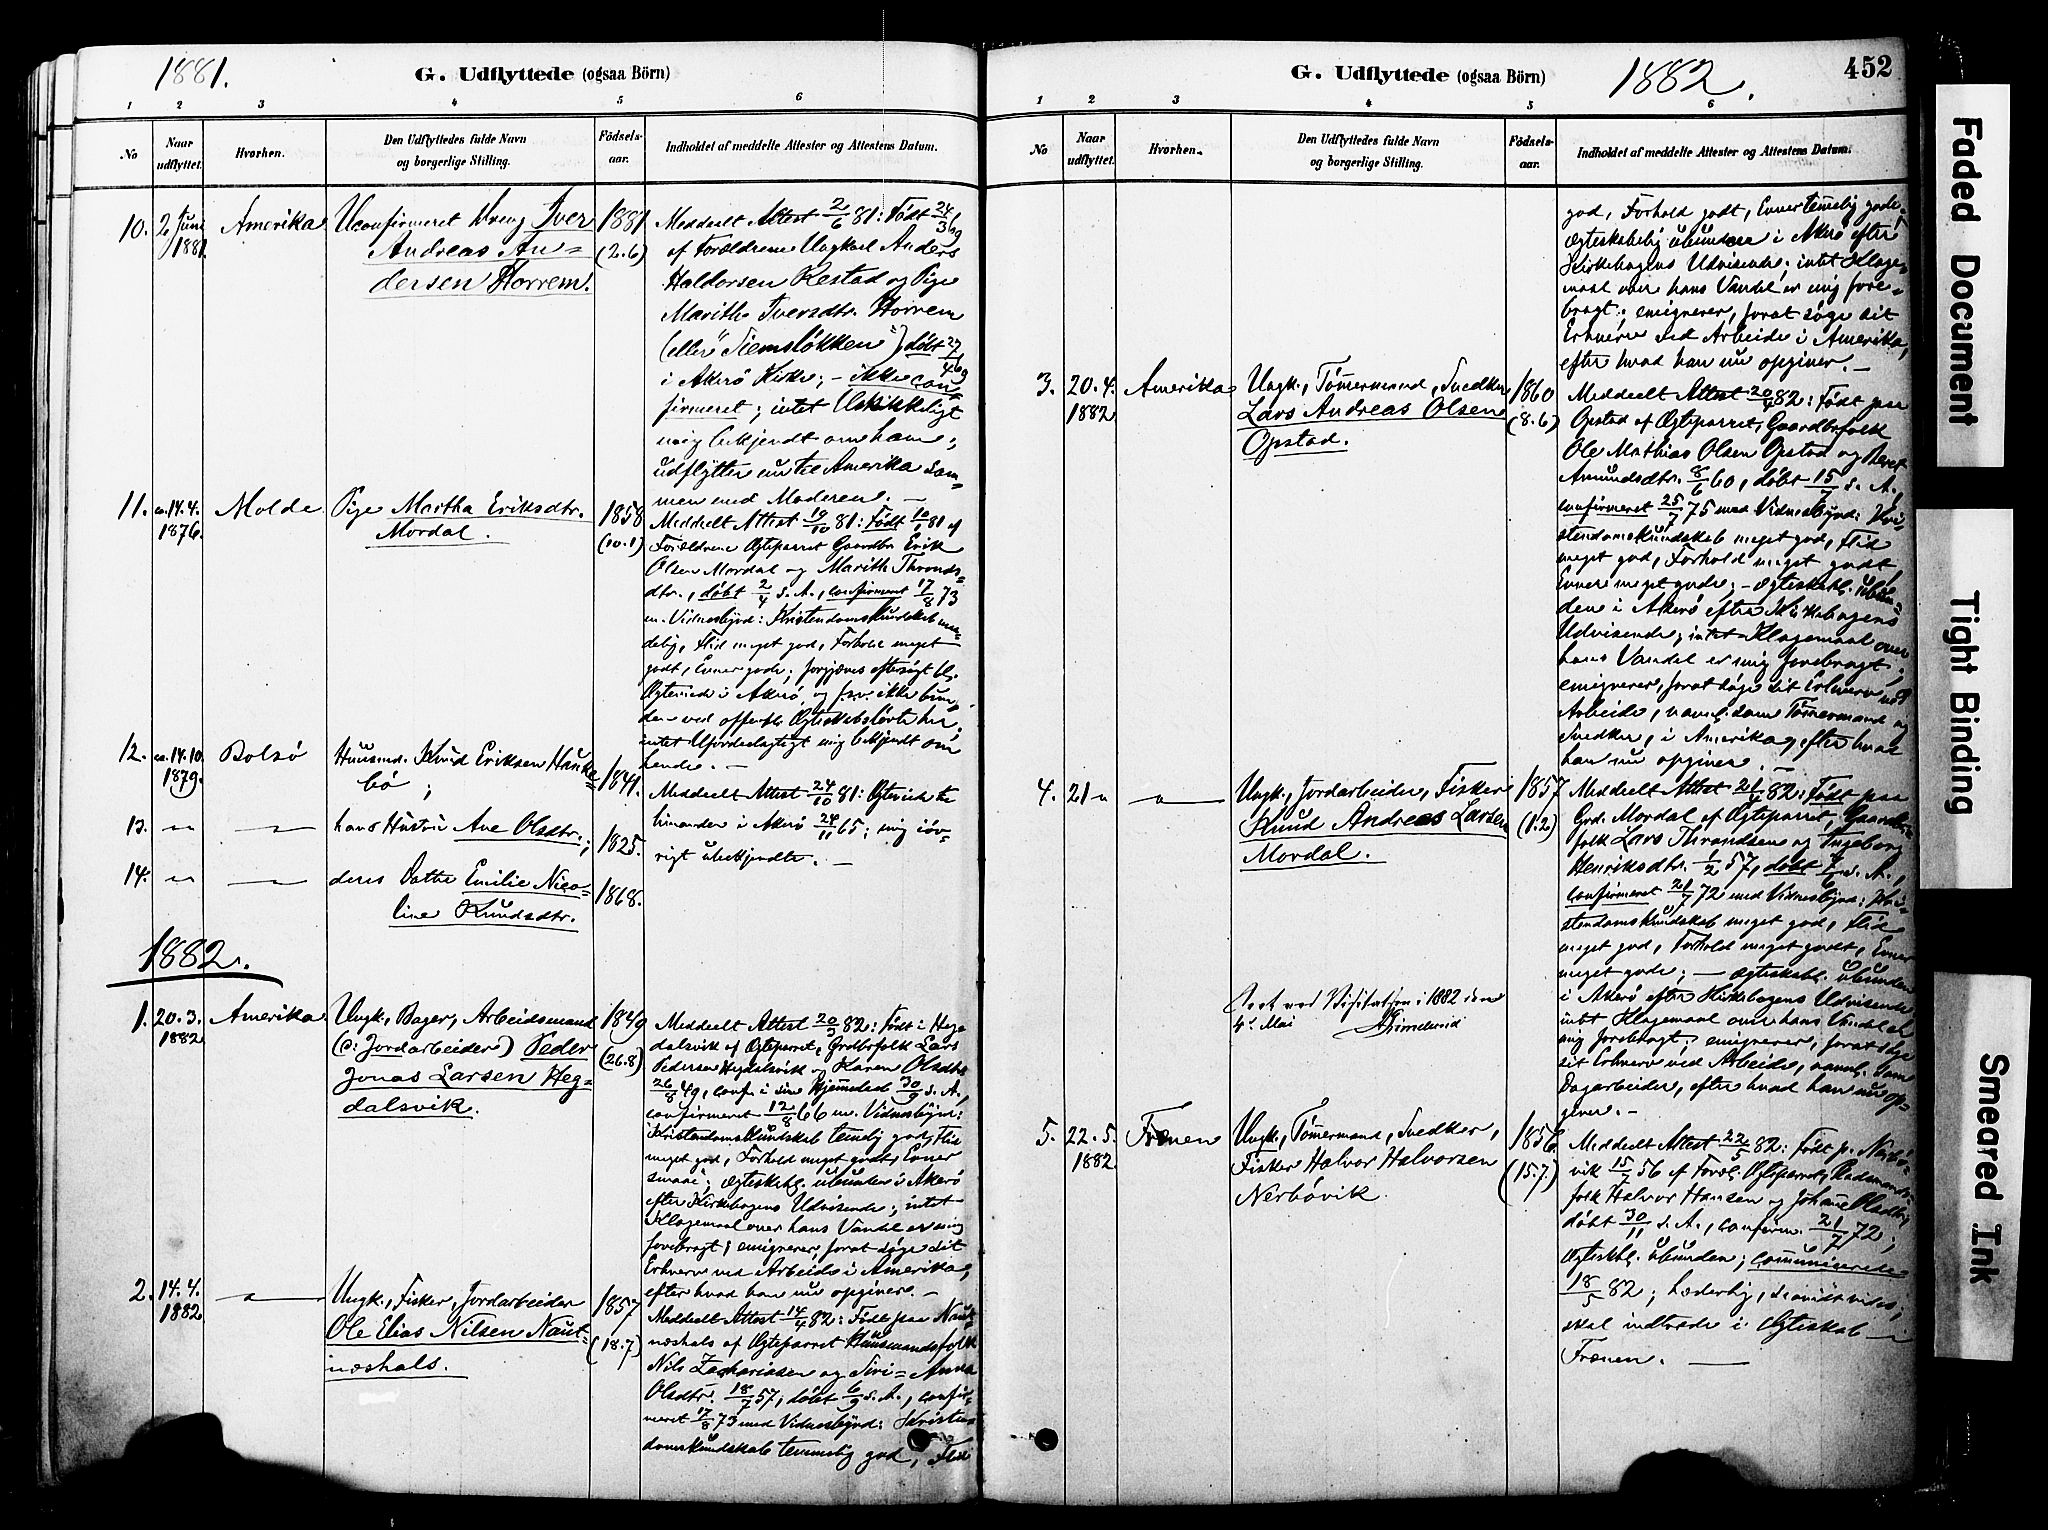 1881.
G. Udflyttede (ogsaa Börn)
1 2 3 4 5 6
No
Naar udflyttet.
Hvorhen.
Den Udflyttedes fulde Navn og borgerlige Stilling.
Födsels-aar.
Indholdet af meddelte Attester og Attestens Datum.
10. 2 Juni 1881.
Amerika
Uconfirmeret Dreng Iver
Andreas An-
dersen Horrem.
1881
(2.6)
Meddeelt Attest 2/6 81: Født 24/3 69
af Forældrene Ungkarl Anders
Haldorsen Restad og Pige
Marith Iversdtr. Horrem
(eller "Tiemsløkken") døbt 27/4 69
i Akerø Kirke; – ikke con-
firmeret; intet Uskikkeligt
mig bekjendt om ham;
udflytter nu til Amerika sam-
men med Moderen. –
11. ca. 14.4. 1876.
Molde
Pige Martha Eriksdtr.
Mordal.
1858
(10.1)
Meddeelt Attest 19/10 81: Født 10/1 81 af
Forældrene Ægteparret Gaardbr. Erik
Olsen Mordal og Marith Thronds-
dtr., døbt 2/4 s. A., confirmeret 17/8 73
m. Vidnesbyrd: Kristendomskundskab
meget god, Forhold meget
godt, Evner gode; forgjæves eftersøgt
i Akerø, og ikke bun-
den ved offentl. Ægteskabsløfte her,
intet Ufordelagtigt mig bekjendt om
hende. –
12. ca. 14.10. 1879.
Bolsø
Huusmd. Knud Eriksen Hauke-
bø;
1841.
Meddeelt Attest 24/10 81: Ægteviede til
hinanden i Akerø 24/11 65; mig iøv-
rigt ubekjendte. –
13. " –
hans Hustru Ane Olsdtr.;
1825.
14. " –
deres Datter Emilie Nico-
line Knudsdtr.
1868.
1882.
1. 20.3. 1882
Amerika
Ungk., Bager, Arbeidsmand
(ɔ: Jordarbeider) Peder
Jonas Larsen Heg-
dalsvik.
1849
(26.8)
Meddeelt Attest 20/3 82: Født i Heg-
dalsvik af Ægteparret, Grdbrfolk Lars
Pedersen Hegdalsvik og Karen Olsdtr.
26/8 49, i sine Hjemsted 30/9 s. A.,
confirmeret 12/8 66 m. Vidnesbyrd:
Kristendomskundskab temelig god, Flid
meget god, Forhold meget godt, Evner
smaa; ægteskbl. ubunden i Akerø
efter Kirkebogens Udvisende; intet
Klagemaal over hans Vandel er mig
forebragt; emigrerer, forat søge sit
Erhverv ved Arbeide i Amerika,
efter hvad han nu opgiver. –
2. 14.4. 1882
" –
Ungk., Fisker, Jordarbeider
Ole Elias Nilsen Naut-
næshals.
1857
(18.7)
Meddeelt Attest 14/4 82: Født paa Naut-
næshals af Ægteparret Huusmandsfolk
Nils Zachariasen og Siri-Anna
Olsdtr. 18/7 57; døbt 6/9 s. A., confir-
meret 17/8 73 med Vidnesbyrd: Kristen-
domskundskab temmelig god, Flid
G. Udflyttede (ogsaa Börn)
1882.
452
1 2 3 4 5 6
No
Naar udflyttet.
Hvorhen.
Den Udflyttedes fulde Navn og borgerlige Stilling.
Födsels-aar.
Indholdet af meddelte Attester og Attestens Datum.
god, Forhold godt, Evner temelig gode.
Ægteskabelig ubunden i Akerø efter
Kirkebogens Udvisende; intet Klage-
maal over hans Vandel er mig fore-
bragt; emigrerer, forat søge sit
Erhverv ved Arbeide i Amerika,
efter hvad han nu opgiver. –
3. 20.4. 1882
Amerika
Ungk., Tømermand, Snedker
Lars Andreas Olsen
Opstad.
1860
(8.6)
Meddeelt Attest 20/4 82: Født paa
Opstad af Ægteparret, Gaardbrfolk
Ole Mathias Olsen Opstad og Beret
Amundsdtr. 8/6 60, døbt 15/7 s. A.,
confirmeret 25/7 75 med Vidnesbyrd: Kri-
stendomskundskab meget god, Flid
meget god, Forhold meget godt,
Evner meget gode; – ægteskabl. ubun-
den i Akerø efter Kirkebogens
Udvisende; intet Klagemaal over
hans Vandel er mig forebragt;
emigrerer, forat søge sit Erhverv ved
Arbeide, navnl. som Tømermand og
Snedker, i Amerika, efter hvad
han nu opgiver. –
4. 21 "
" –
Ungk., Jordarbeider, Fisker
Knud Andreas Larsen
Mordal.
1857
(1.2)
Meddeelt Attest 21/4 82: Født paa
Grd. Mordal af Ægteparret, Gaardbr-
folk Lars Thrandsen og Ingeborg
Henriksdtr. 1/2 57, døbt 7/6 s. A.,
confirmeret 21/7 72 med Vidnesbyrd: Kri-
stendomskundskab meget god, Flid
meget god, Forhold meget godt, Evner
meget gode; – ægteskabl. ubunden
i Akerø efter Kirkebogens Udvisende
intet Klagemaal over hans Vandel er
mig forebragt; emigrerer, forat søge
sit Erhverv ved Arbeide, navnl. som
Dagarbeider, efter hvad han nu op-
giver. –
Seet ved Visitation i 1882 den
4de Mai
5. 22.5. 1882.
Frænen
Ungk., Tømermand, Snedker,
Fisker Halvor Halvorsen
Nerbøvik.
1856
(15.7)
Meddeelt Attest 22/5 82: Født p. Nerbø-
vik 15/7 56 af Foræl. Ægteparret,
folk Halvor Hansen og
døbt 30/11 s. A., confirm. 21/7 72;
Ægteskbl. ubunden; communicerede
18/5 82; hæderlig, saavidt vides;
skal indtræde i Ægteskab i
Frænen. –
Faded Document
Tight Binding
Smeared Ink